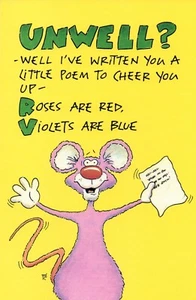 UNWELL?
-WELL I'VE WRITTEN YOU A
LITTLE POEM TO CHEER YOU
UP-
ROSES ARE RED,
VIOLETS ARE BLUE